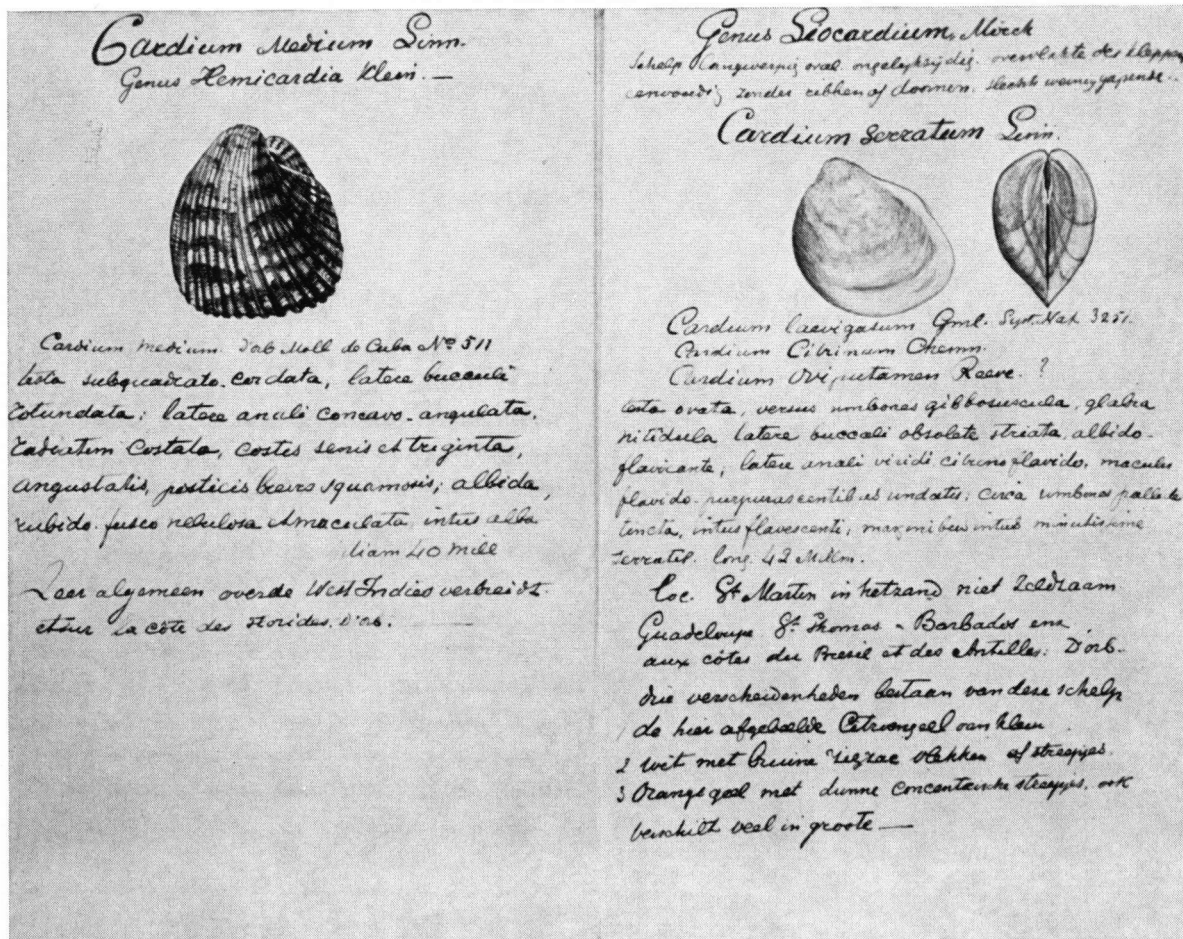 Cardium Medium Linn.
Genus Hemicardia Klein. —
Cardium medium. D'orb Moll de Cuba Nº 511
testa subquadrato-cordata, latere buccali
rotundata; latere anali concavo-angulata,
radiatim costata, costis senis et triginta,
angustatis, posticis brevi squamosis; albida,
rubido-fusco nebulosa & maculata, intus alba
diam 40 mill
Zeer algemeen over de West Indies verbreidt.
et sur la côte des Florides. D'ob.
Genus Liocardium, Mörck
Schelp langwerpig oval ongelykzijdig. oppervlakte der kleppen
eenvoudig zonder ribben of doornen. slechts weinig gapende..
Cardium Serratum Linn.
Cardium laevigatum Gml. Syst. Nat 3251.
Cardium Citrinum Chemn.
Cardium Oviputamen Reeve. ?
testa ovata, versus umbones gibbosuscula, glabra
nitidula latere buccali obsolete striata, albido-
flavicante, latere anali viridi citrino flavido, maculis
flavido-purpurascentibus undatis; circa umbones pallide
tincta, intus flavescenti; marginibus intus minutissime
serratis. long. 42 M.m.
Loc. St Martin in het zand niet zeldzaam
Guadeloupe St Thomas - Barbados enz
aux côtes du Bresil et des Antilles. D'orb.
drie verscheidenheden bestaan van deze schelp
1 de hier afgebeelde Citroengeel van kleur
2 wit met bruine zigzac vlekken of streepjes
3 Orangegeel met dunne concentrische streepjes. ook
verschilt veel in groote —